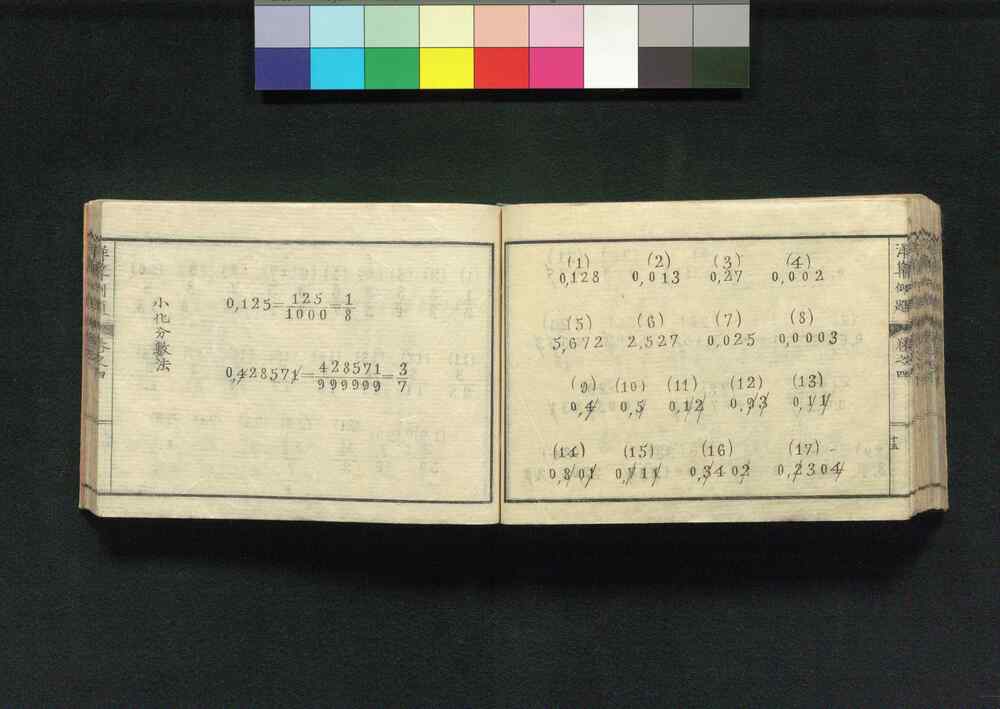 小化分數法
0,125=125/1000=1/8
0,428571=428571/999999=3/7
(1) (2) (3) (4)
0,128 0,013 0,27 0,002
(5) (6) (7) (8)
5,672 2,527 0,025 0,0003
(9) (10) (11) (12) (13)
0,4 0,5 0,12 0,93 0,11
(14) (15) (16) (17)
0,801 0,711 0,3402 0,2304